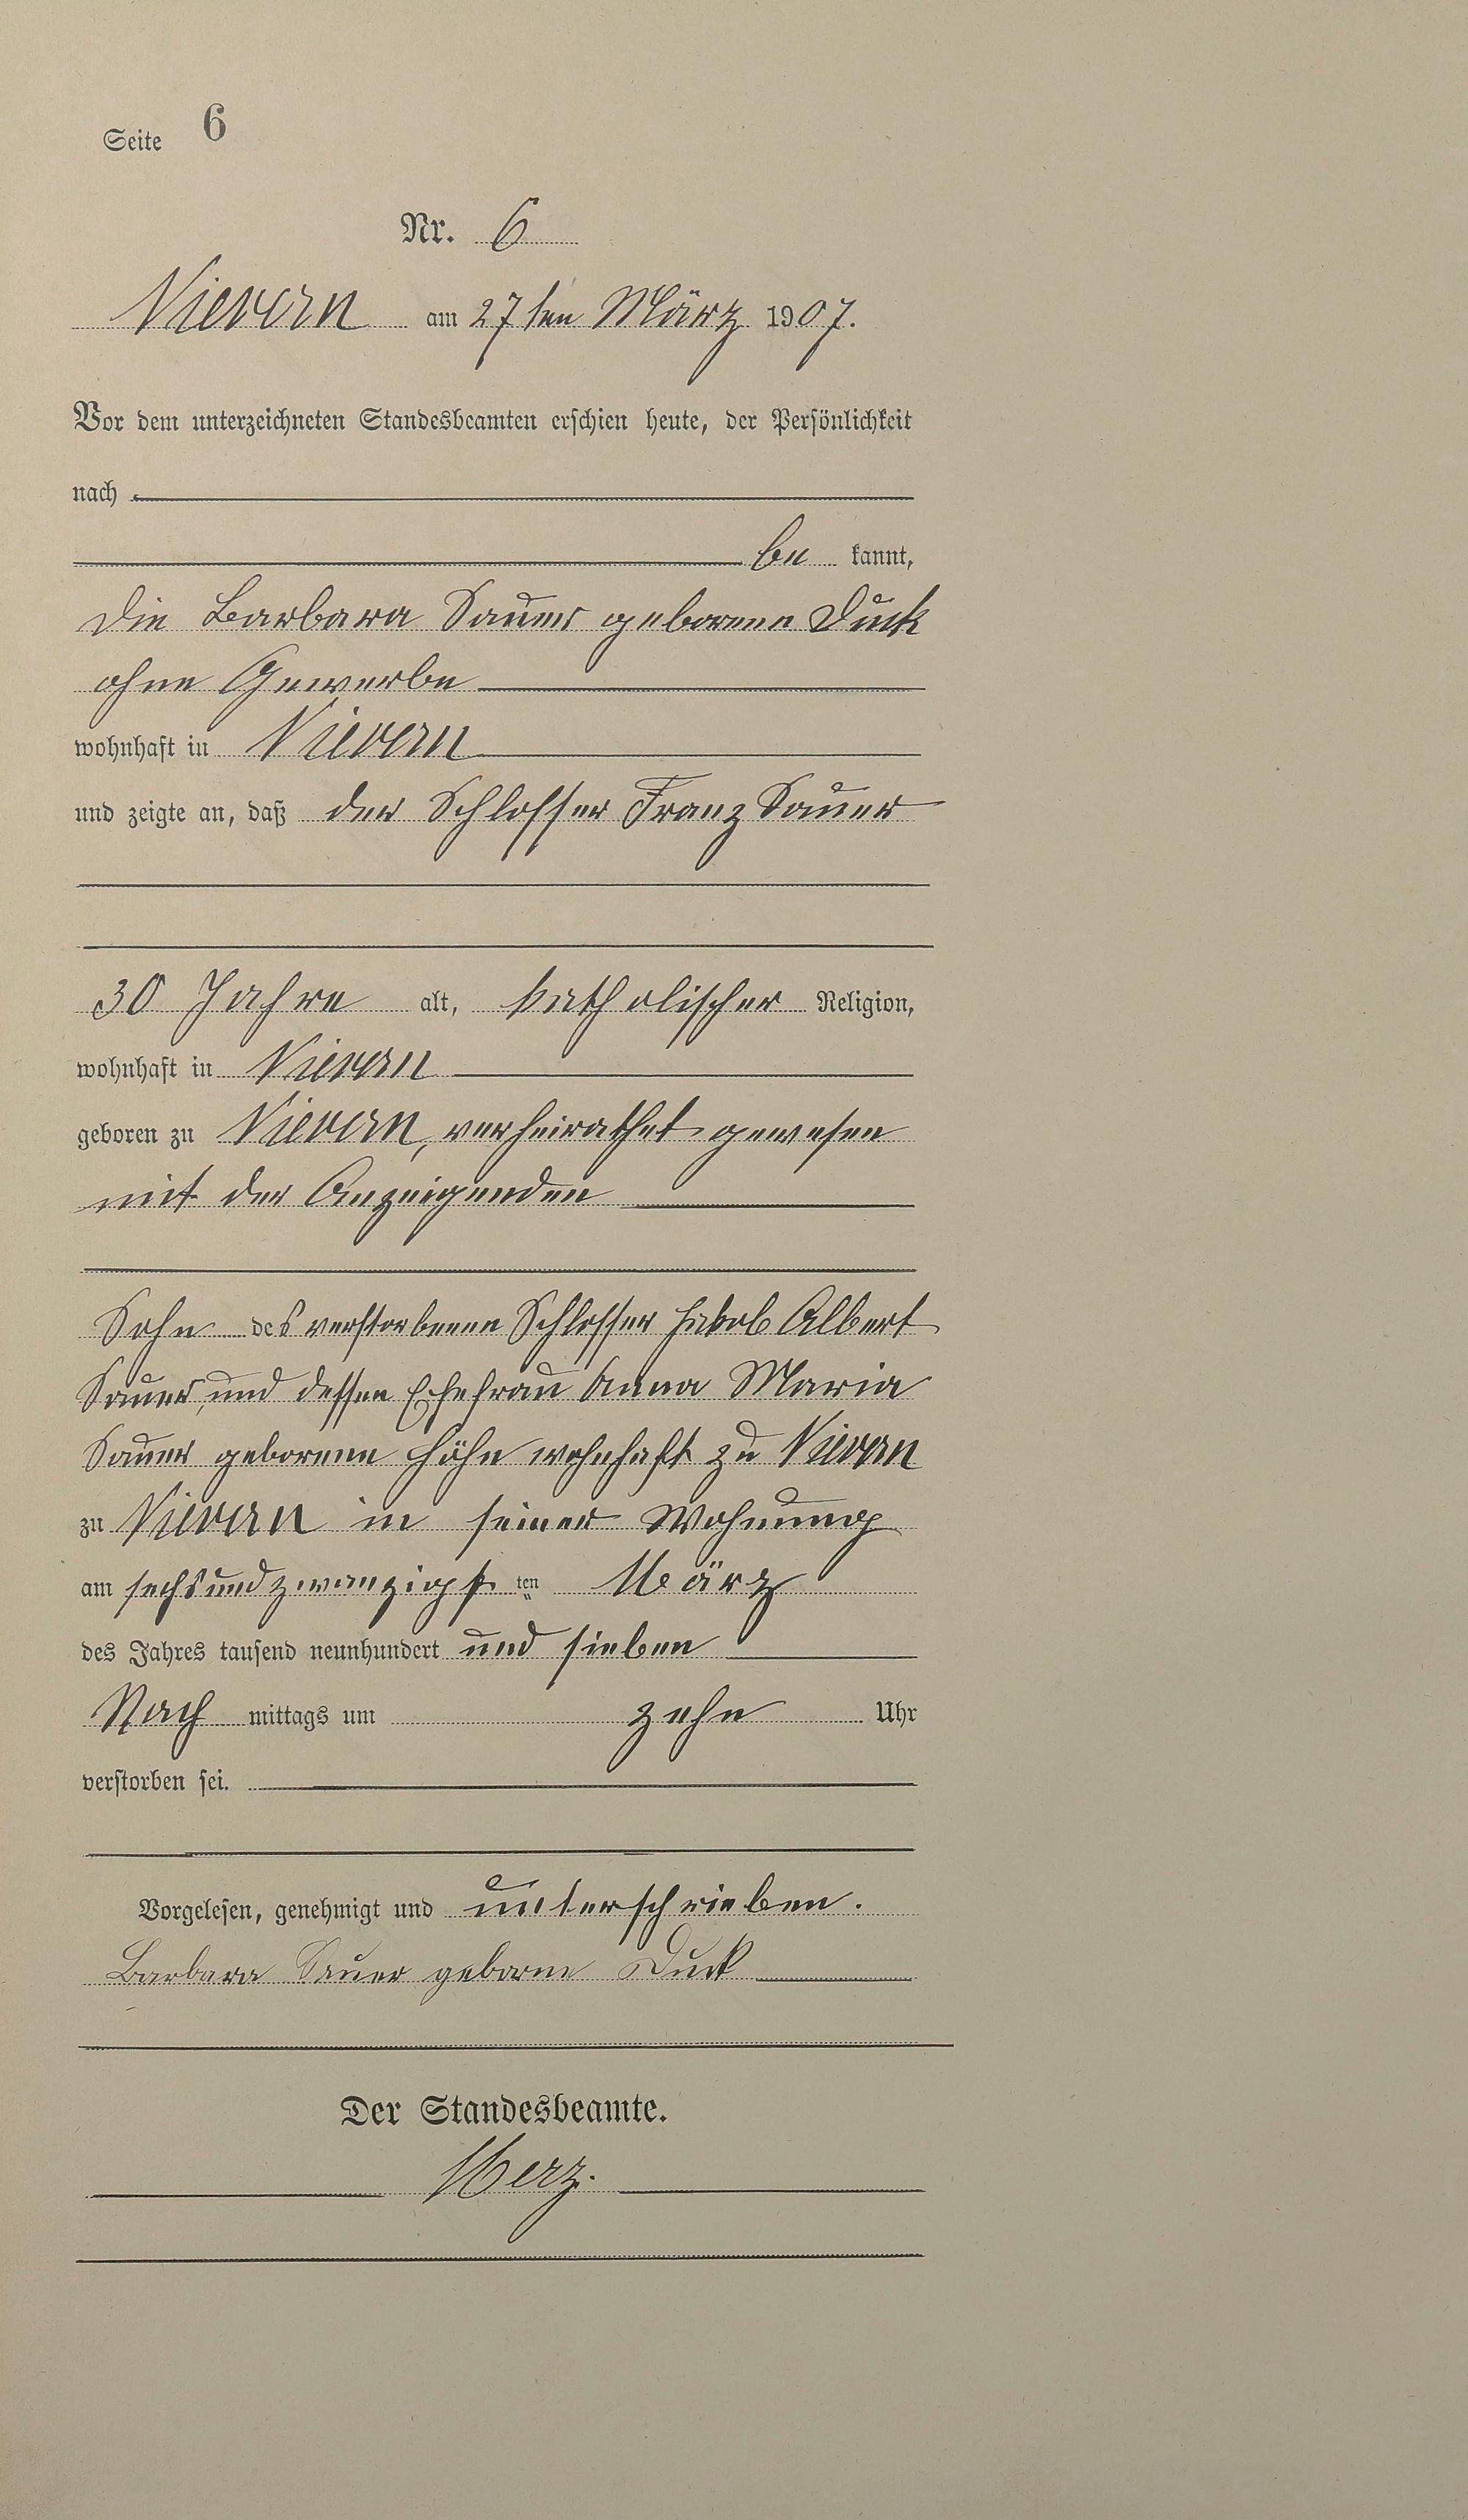 Seite 6
Nr. 6
Nievern am 27ten März 1907.
Vor dem unterzeichneten Standesbeamten erschien heute, der Persönlichkeit
nach
be kannt,
die Barbara Sauer geborene Duck
ohne Gewerbe
wohnhaft in Nievern
und zeigte an, daß der Schlosser Franz Sauer
30 Jahre alt, katholischer Religion,
wohnhaft in Nievern
geboren zu Nievern, verheirathet gewesen
mit der Anzeigenden
Sohn des verstorbenen Schlosser Jakob Albert
Sauer und dessen Ehefrau Anna Maria
Sauer geborene Höhn wohnhaft zu Nievern
zu Nievern in seiner Wohnung
am sechsundzwanzigs ten März
des Jahres tausend neunhundert und sieben
Nach mittags um zehn Uhr
verstorben sei.
Vorgelesen, genehmigt und unterschrieben.
Barbara Sauer geborne Duck
Der Standesbeamte.
Merz.